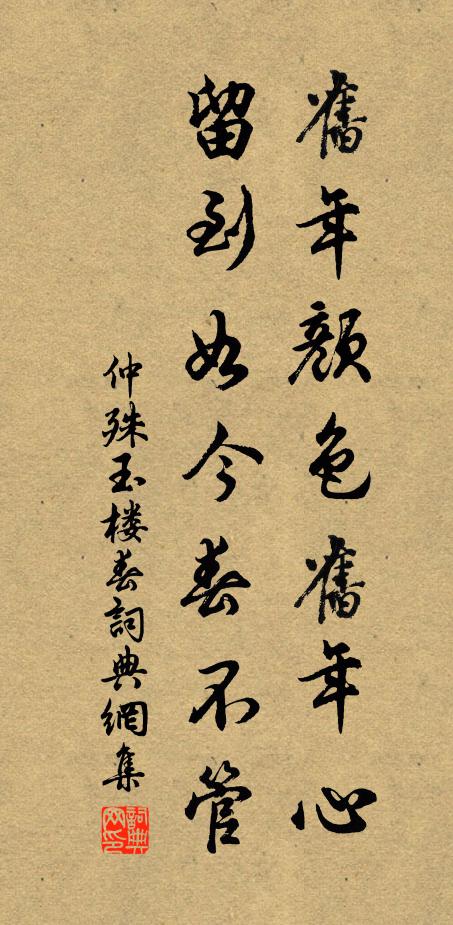 舊年顏色舊年心
留到如今春不管
仲殊玉楼春詞典網集
詞典网印